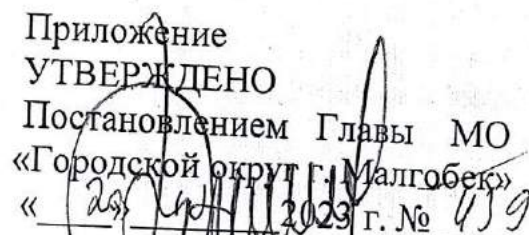 Приложение
УТВЕРЖДЕНО
Постановлением Главы МО
«Городской округ г. Малгобек»
« 20» 2023 г. №